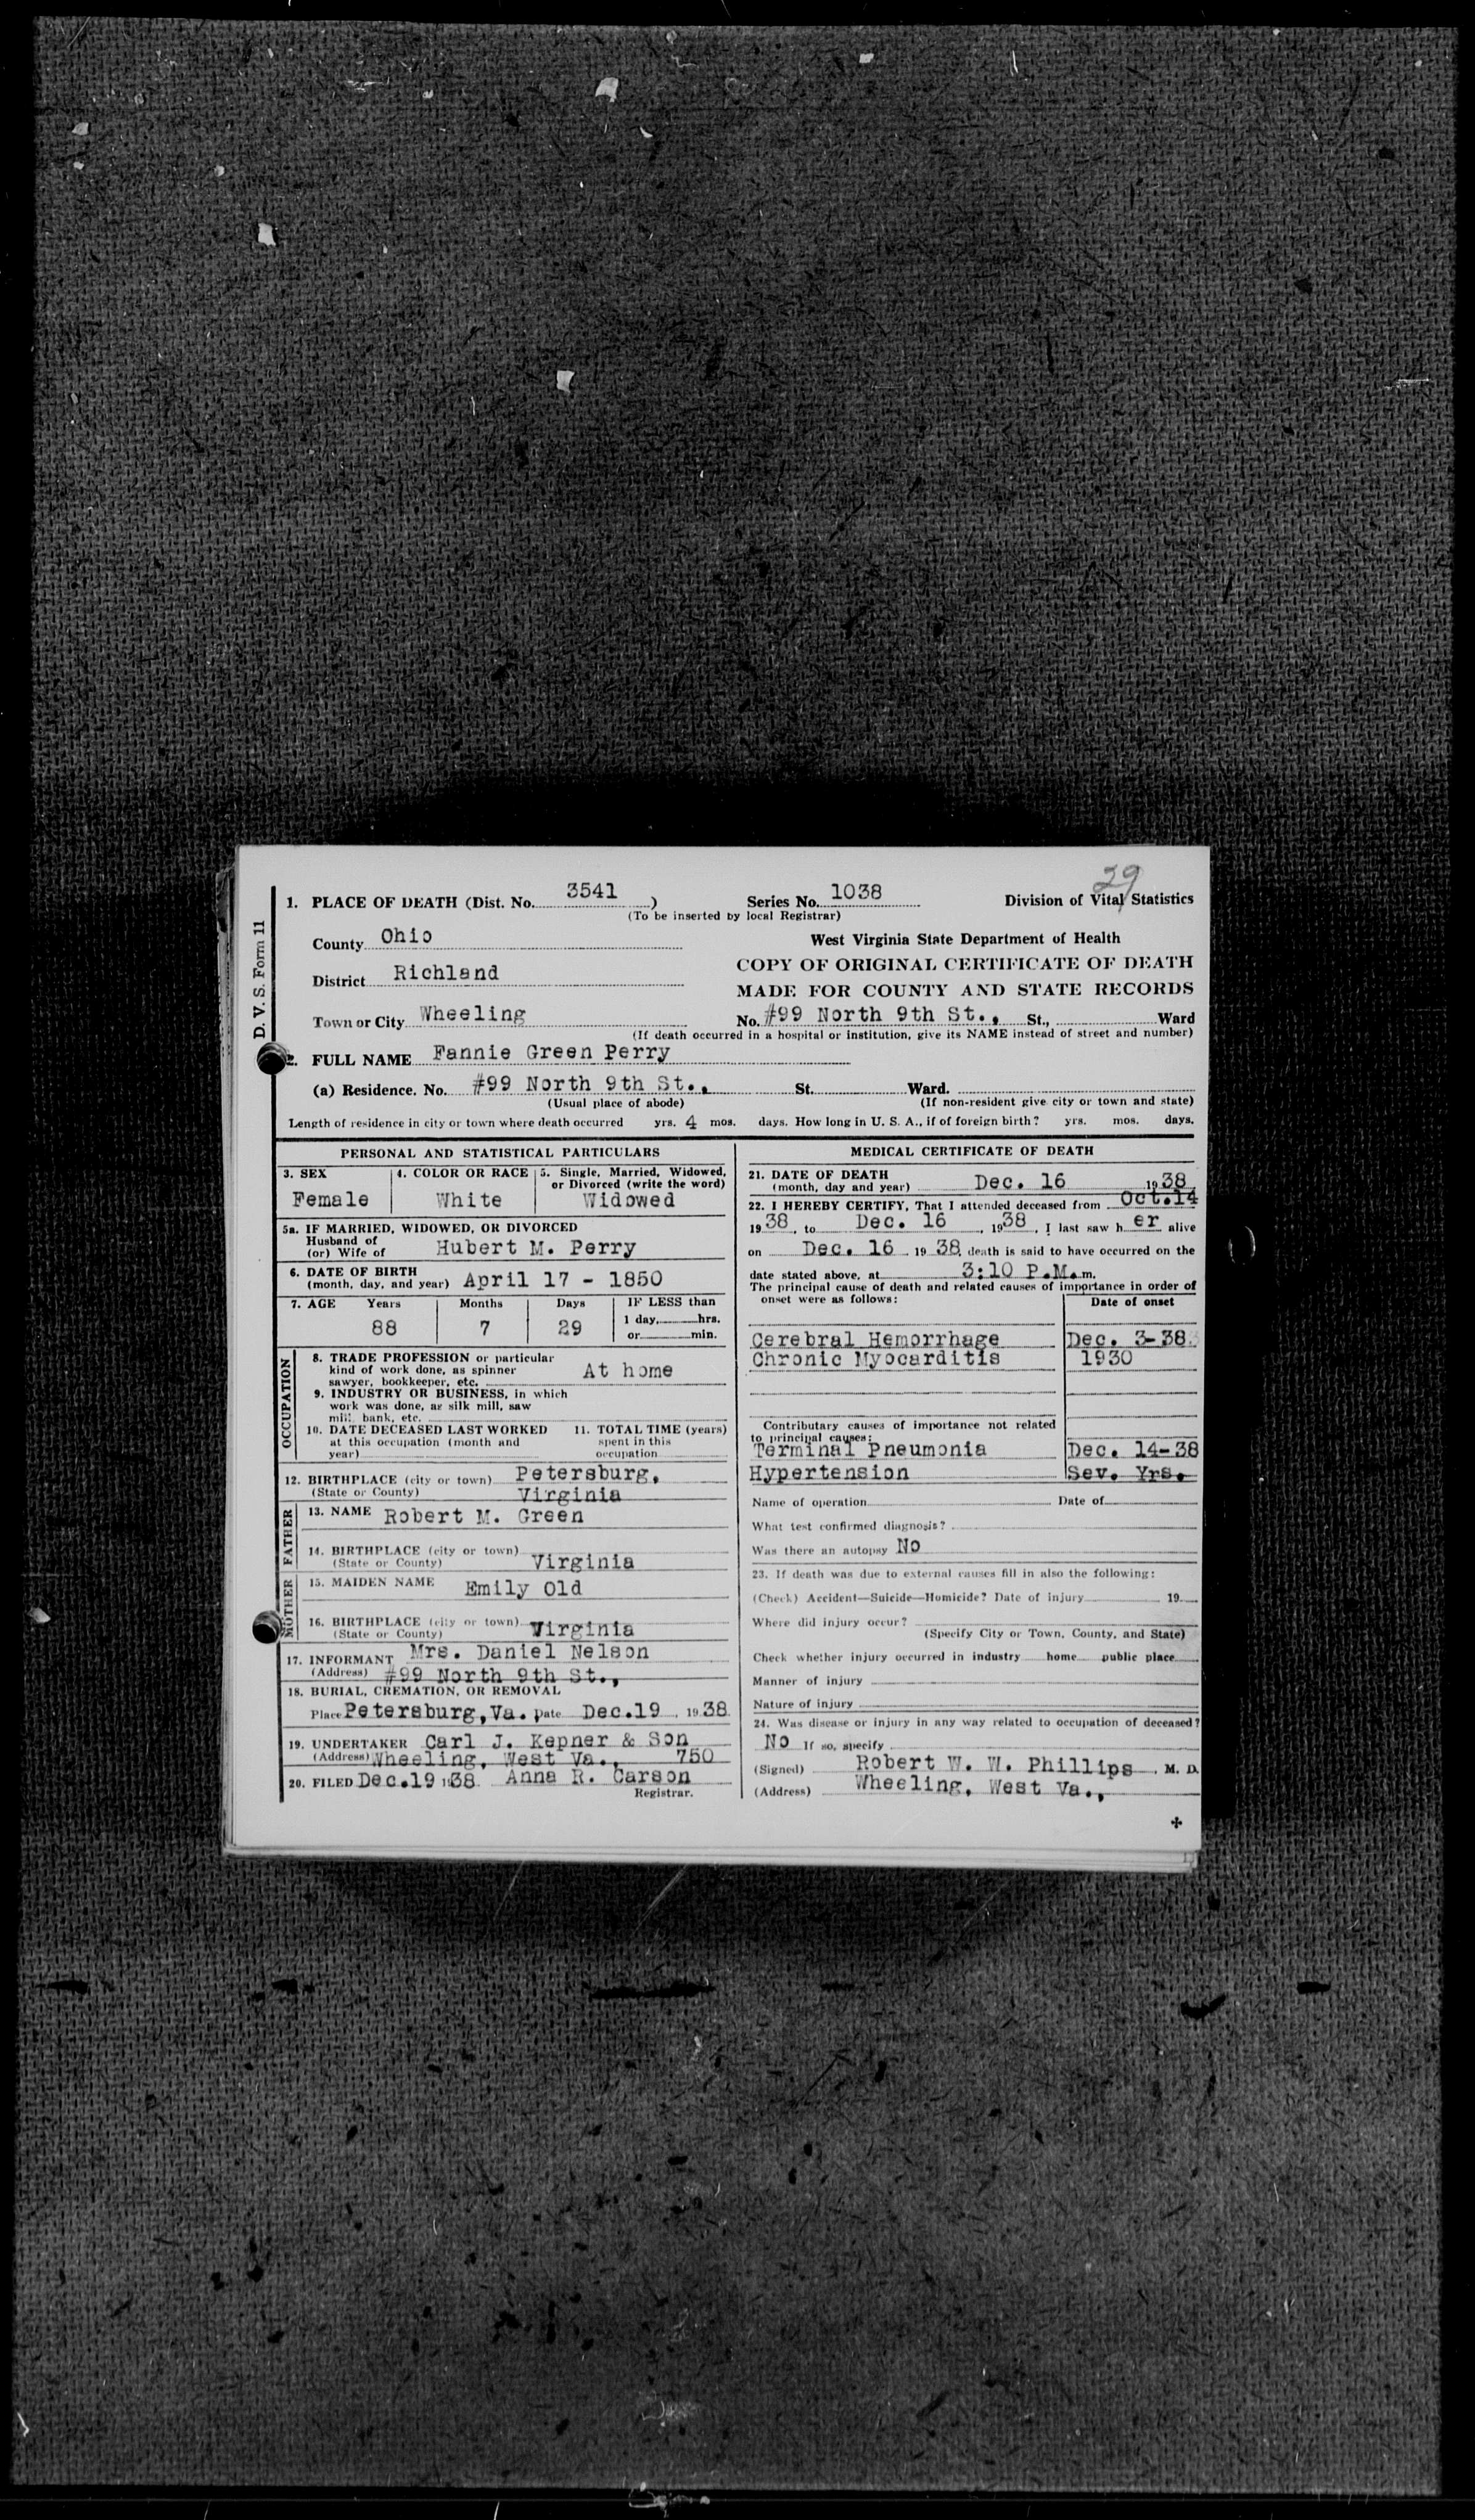 29
D. V. S. Form 11
1. PLACE OF DEATH (Dist. No. 3541 ) Series No. 1038 Division of Vital Statistics
(To be inserted by local Registrar)
County Ohio
West Virginia State Department of Health
District Richland
COPY OF ORIGINAL CERTIFICATE OF DEATH
MADE FOR COUNTY AND STATE RECORDS
Town or City Wheeling No. #99 North 9th St., St., Ward
(If death occurred in a hospital or institution, give its NAME instead of street and number)
2. FULL NAME Fannie Green Perry
(a) Residence. No. #99 North 9th St., St. Ward.
(Usual place of abode) (If non-resident give city or town and state)
Length of residence in city or town where death occurred yrs. 4 mos. days. How long in U. S. A., if of foreign birth? yrs. mos. days.
PERSONAL AND STATISTICAL PARTICULARS
3. SEX 4. COLOR OR RACE 5. Single, Married, Widowed,
or Divorced (write the word)
Female White Widowed
5a. IF MARRIED, WIDOWED, OR DIVORCED
Husband of
(or) Wife of Hubert M. Perry
6. DATE OF BIRTH
(month, day, and year) April 17 - 1850
7. AGE Years Months Days IF LESS than
1 day, hrs.
88 7 29
or min.
OCCUPATION
8. TRADE PROFESSION or particular
kind of work done, as spinner At home
sawyer, bookkeeper, etc.
9. INDUSTRY OR BUSINESS, in which
work was done, as silk mill, saw
mill, bank, etc.
10. DATE DECEASED LAST WORKED 11. TOTAL TIME (years)
at this occupation (month and spent in this
year) occupation
12. BIRTHPLACE (city or town) Petersburg,
(State or County) Virginia
FATHER
13. NAME Robert M. Green
14. BIRTHPLACE (city or town)
(State or County) Virginia
MOTHER
15. MAIDEN NAME Emily Old
16. BIRTHPLACE (city or town)
(State or County) Virginia
17. INFORMANT Mrs. Daniel Nelson
(Address) #99 North 9th St.,
18. BURIAL, CREMATION, OR REMOVAL
Place Petersburg, Va. Date Dec.19 , 1938
19. UNDERTAKER Carl J. Kepner & Son
(Address) Wheeling, West Va., 750
20. FILED Dec.19 1938 Anna R. Carson
Registrar.
MEDICAL CERTIFICATE OF DEATH
21. DATE OF DEATH
(month, day and year) Dec. 16 1938
22. I HEREBY CERTIFY, That I attended deceased from Oct.14
1938, to Dec. 16 , 1938 , I last saw her alive
on Dec. 16 , 1938, death is said to have occurred on the
date stated above, at 3:10 P.M.m.
The principal cause of death and related causes of importance in order of
onset were as follows: Date of onset
Cerebral Hemorrhage Dec. 3-38
Chronic Myocarditis 1930
Contributary causes of importance not related
to principal causes:
Terminal Pneumonia Dec. 14-38
Hypertension Sev. Yrs.
Name of operation Date of
What test confirmed diagnosis?
Was there an autopsy No
23. If death was due to external causes fill in also the following:
(Check) Accident—Suicide—Homicide? Date of injury 19
Where did injury occur?
(Specify City or Town, County, and State)
Check whether injury occurred in industry home public place
Manner of injury
Nature of injury
24. Was disease or injury in any way related to occupation of deceased?
No If so, specify
(Signed) Robert W. W. Phillips , M. D.
(Address) Wheeling, West Va.,